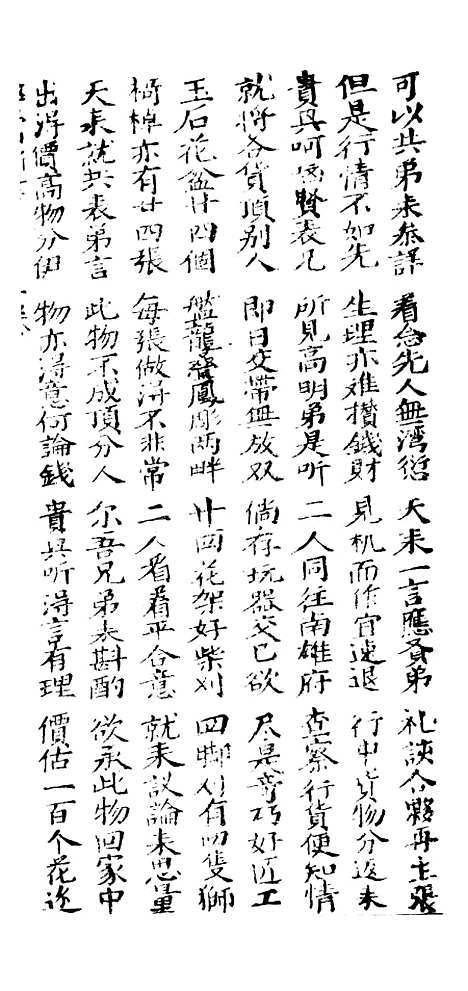 可以共弟来参詳 看念先人無 天来一言應貴弟 礼談合夥再主張
但是行情不如先 生理亦难攅錢財 見机而作宜速退 行中貨物分返来
貴興呵 賢表兄 所見高明弟是听 二人同往南雄府 查察行貨便知情
就將各貨頂別人 即日交帶無放双 倘存玩器交已欲 尽是奇巧好匠工
玉石花盆廿四個 龍 鳳彫两畔 廿四花架好柴刈 四脚刈有四隻獅
椅棹亦有廿四張 每張做淂不非常 二人看看平合意 就来議論来思量
天来就共表弟言 此物不成頂分人 尔吾兄弟来斟酌 欲承此物回家中
出淂價高物分伊 物亦淂意何論錢 貴興听淂言有理 價估一百个花边